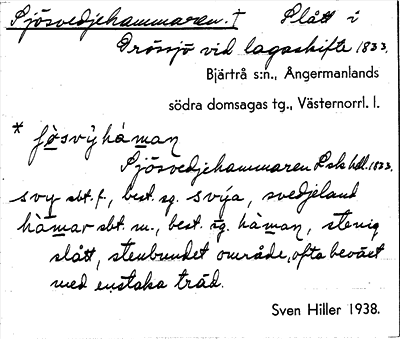 Sjösvedjehammaren. † Slått i
Drössjö vid lagaskifte 1833.
Bjärtrå s:n., Ångermanlands
södra domsagas tg., Västernorrl. l.
* fø̱svy̌hàma̱n
Sjösvedjehammaren Lsk hdl. 1833.
svy sbt. f., best. sg. svýa, svedjeland
hàma̱r sbt. m., best. sg. hàma̱n, stenig
slått, stenbundet område, ofta beväxt
med enstaka träd.
Sven Hiller 1938.